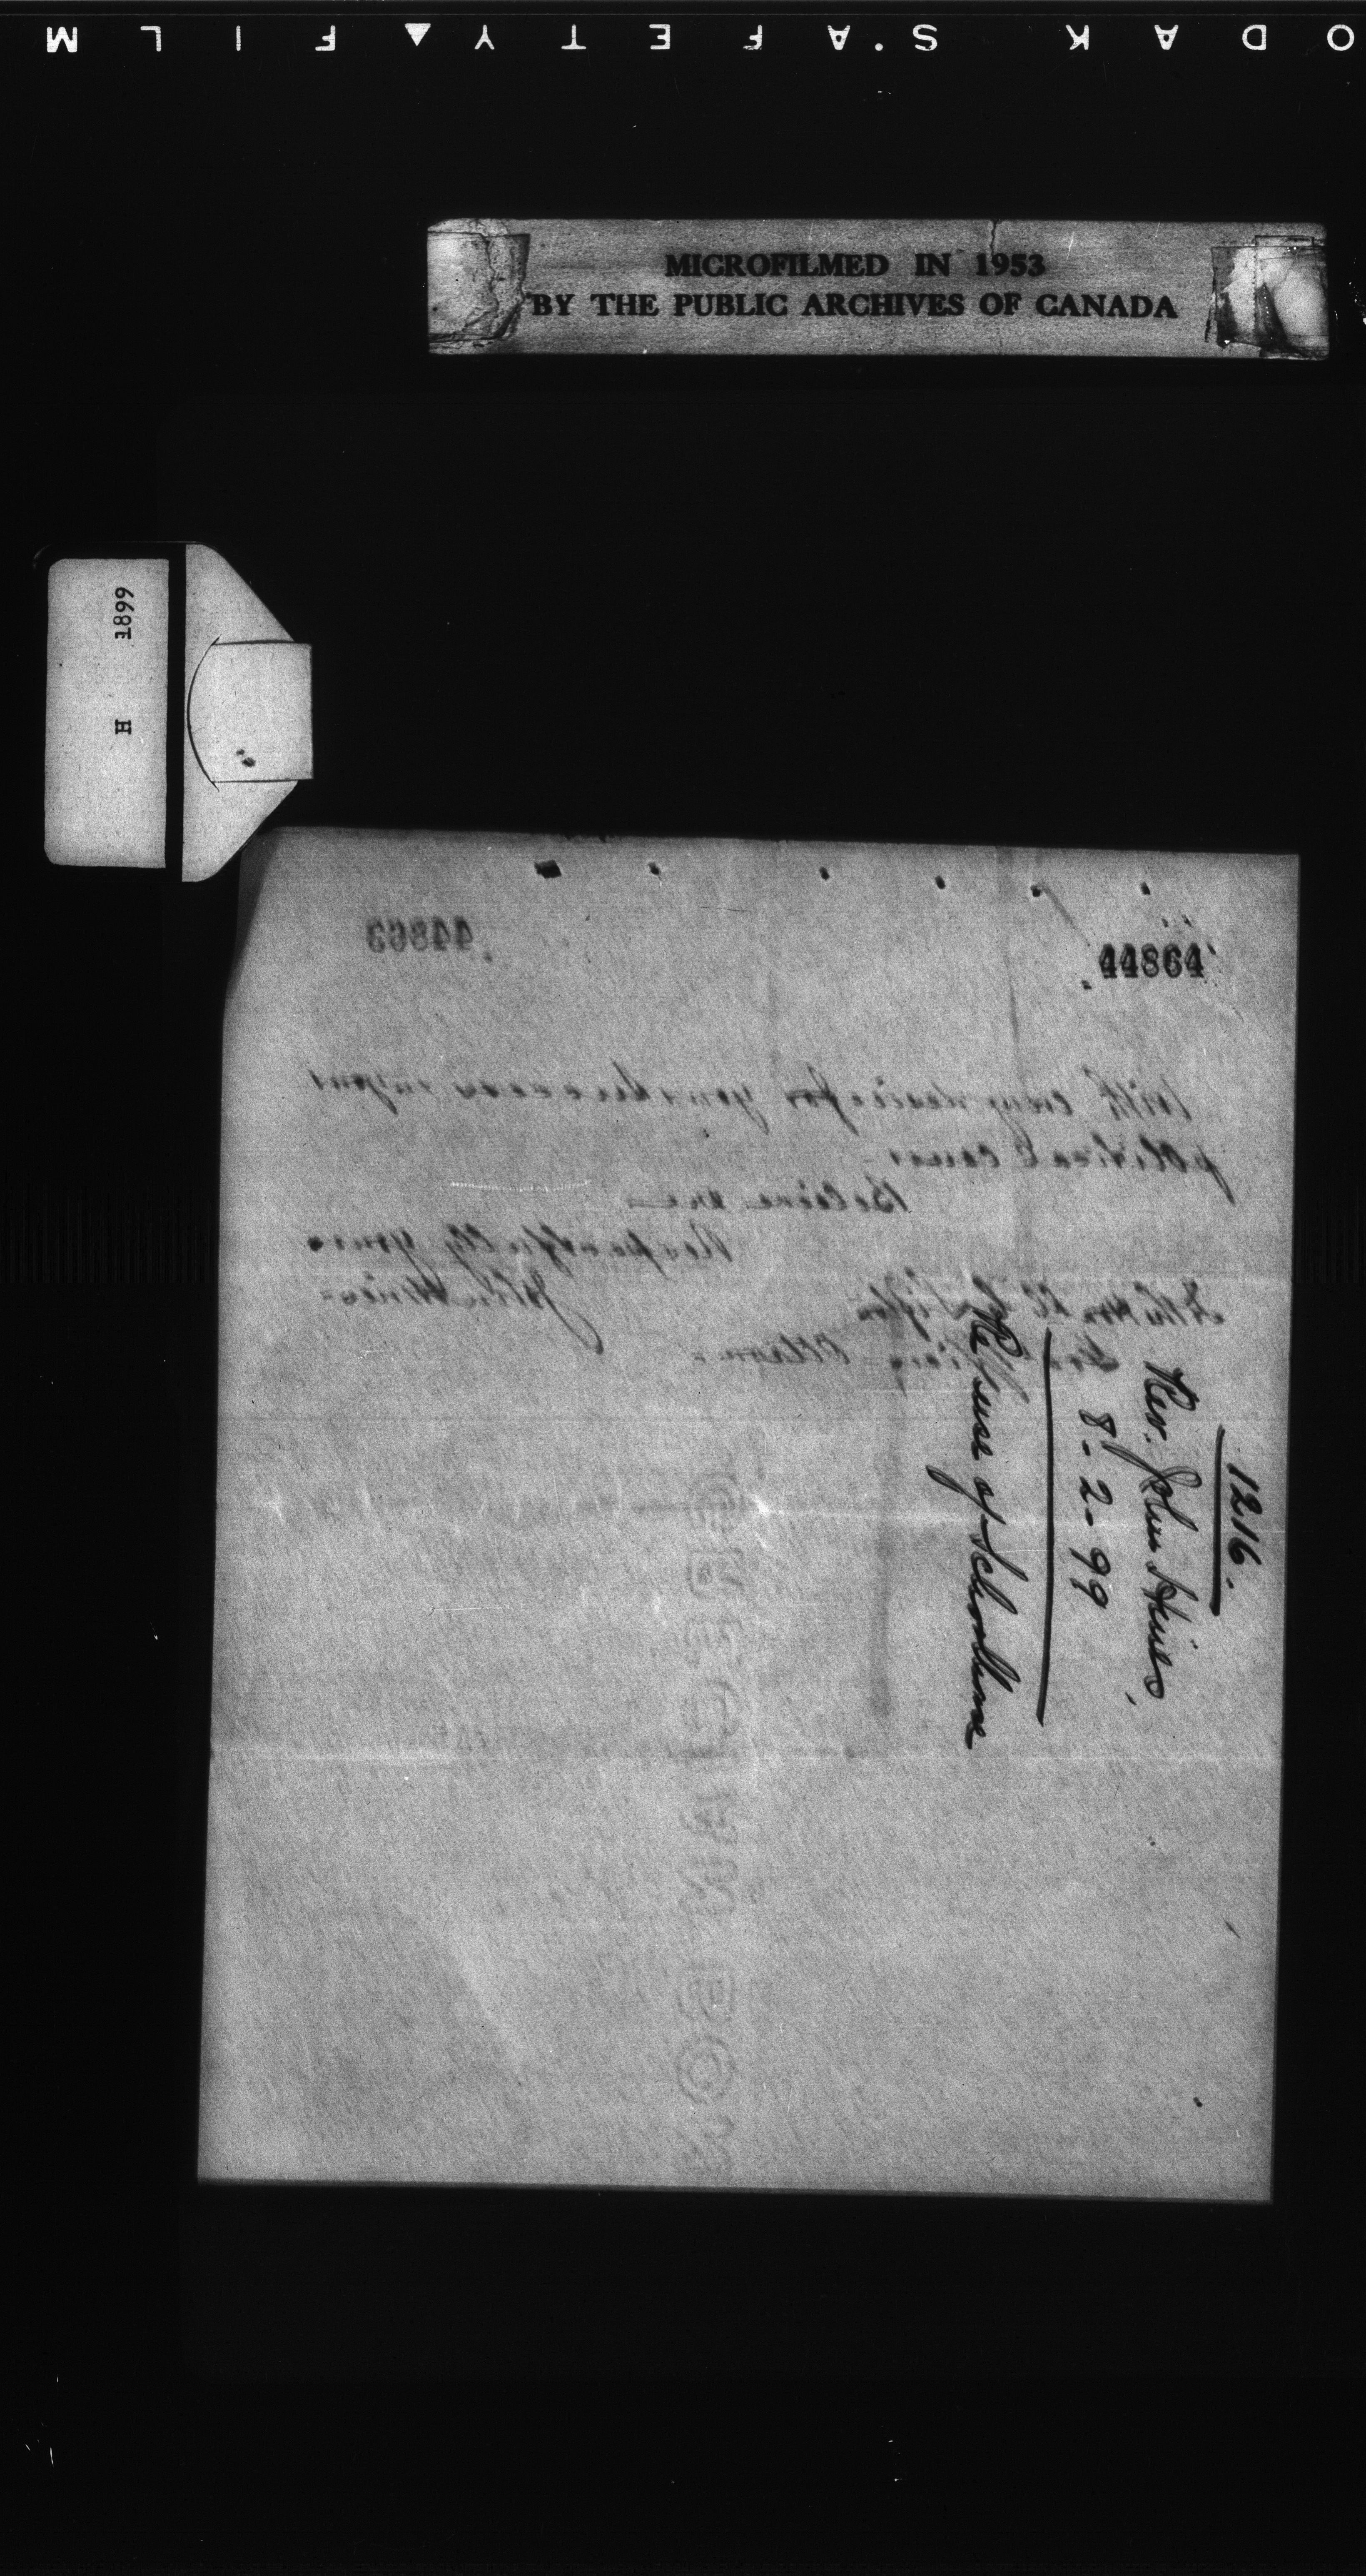 KODAK SAFETY FILM
MICROFILMED IN 1953
BY THE PUBLIC ARCHIVES OF CANADA
H 1899
44864
44863
With every desire for your success in your
political career -
Believe me
Respectfully yours
John Hines -
To the Hon Sifton
Ottawa -
1216.
Rev. John Hines,
8-2-99
Re/ use of Schoolhouse